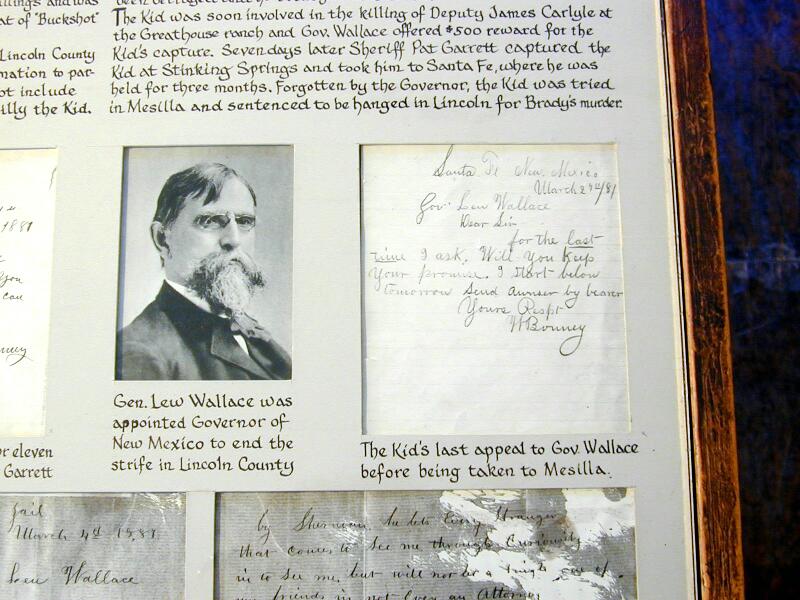 at of "Buckshot
The Kid was soon involved in the killing of Deputy James Carlyle at
the Greathouse ranch and Gov. Wallace offered $500 reward for the
Kid's capture. Seven days later Sheriff Pat Garrett captured the
Kid at Stinking Springs and took him to Santa Fe, where he was
held for three months. Forgotten by the Governor, the Kid was tried
in Mesilla and sentenced to be hanged in Lincoln for Brady's murder.
Lincoln County
mation to par-
ot include
illy the Kid.
1881
you
can
nney
or eleven
Garrett
Gen. Lew Wallace was
appointed Governor of
New Mexico to end the
strife in Lincoln County
Santa Fe New Mexico
March 27th/81
Gov. Lew Wallace
Dear Sir
for the last
time I ask. Will you keep
your promise. I start below
tomorrow Send Awnser by bearer
Yours Respt
WBonney
The Kid's last appeal to Gov. Wallace
before being taken to Mesilla.
Jail
March 4th 1881
Lew Wallace
by Sherman, he lets Every Stranger
that comes to See me through Curiosity
in to See me, but will not let a Single one of
my friends in, not Even an Attorney